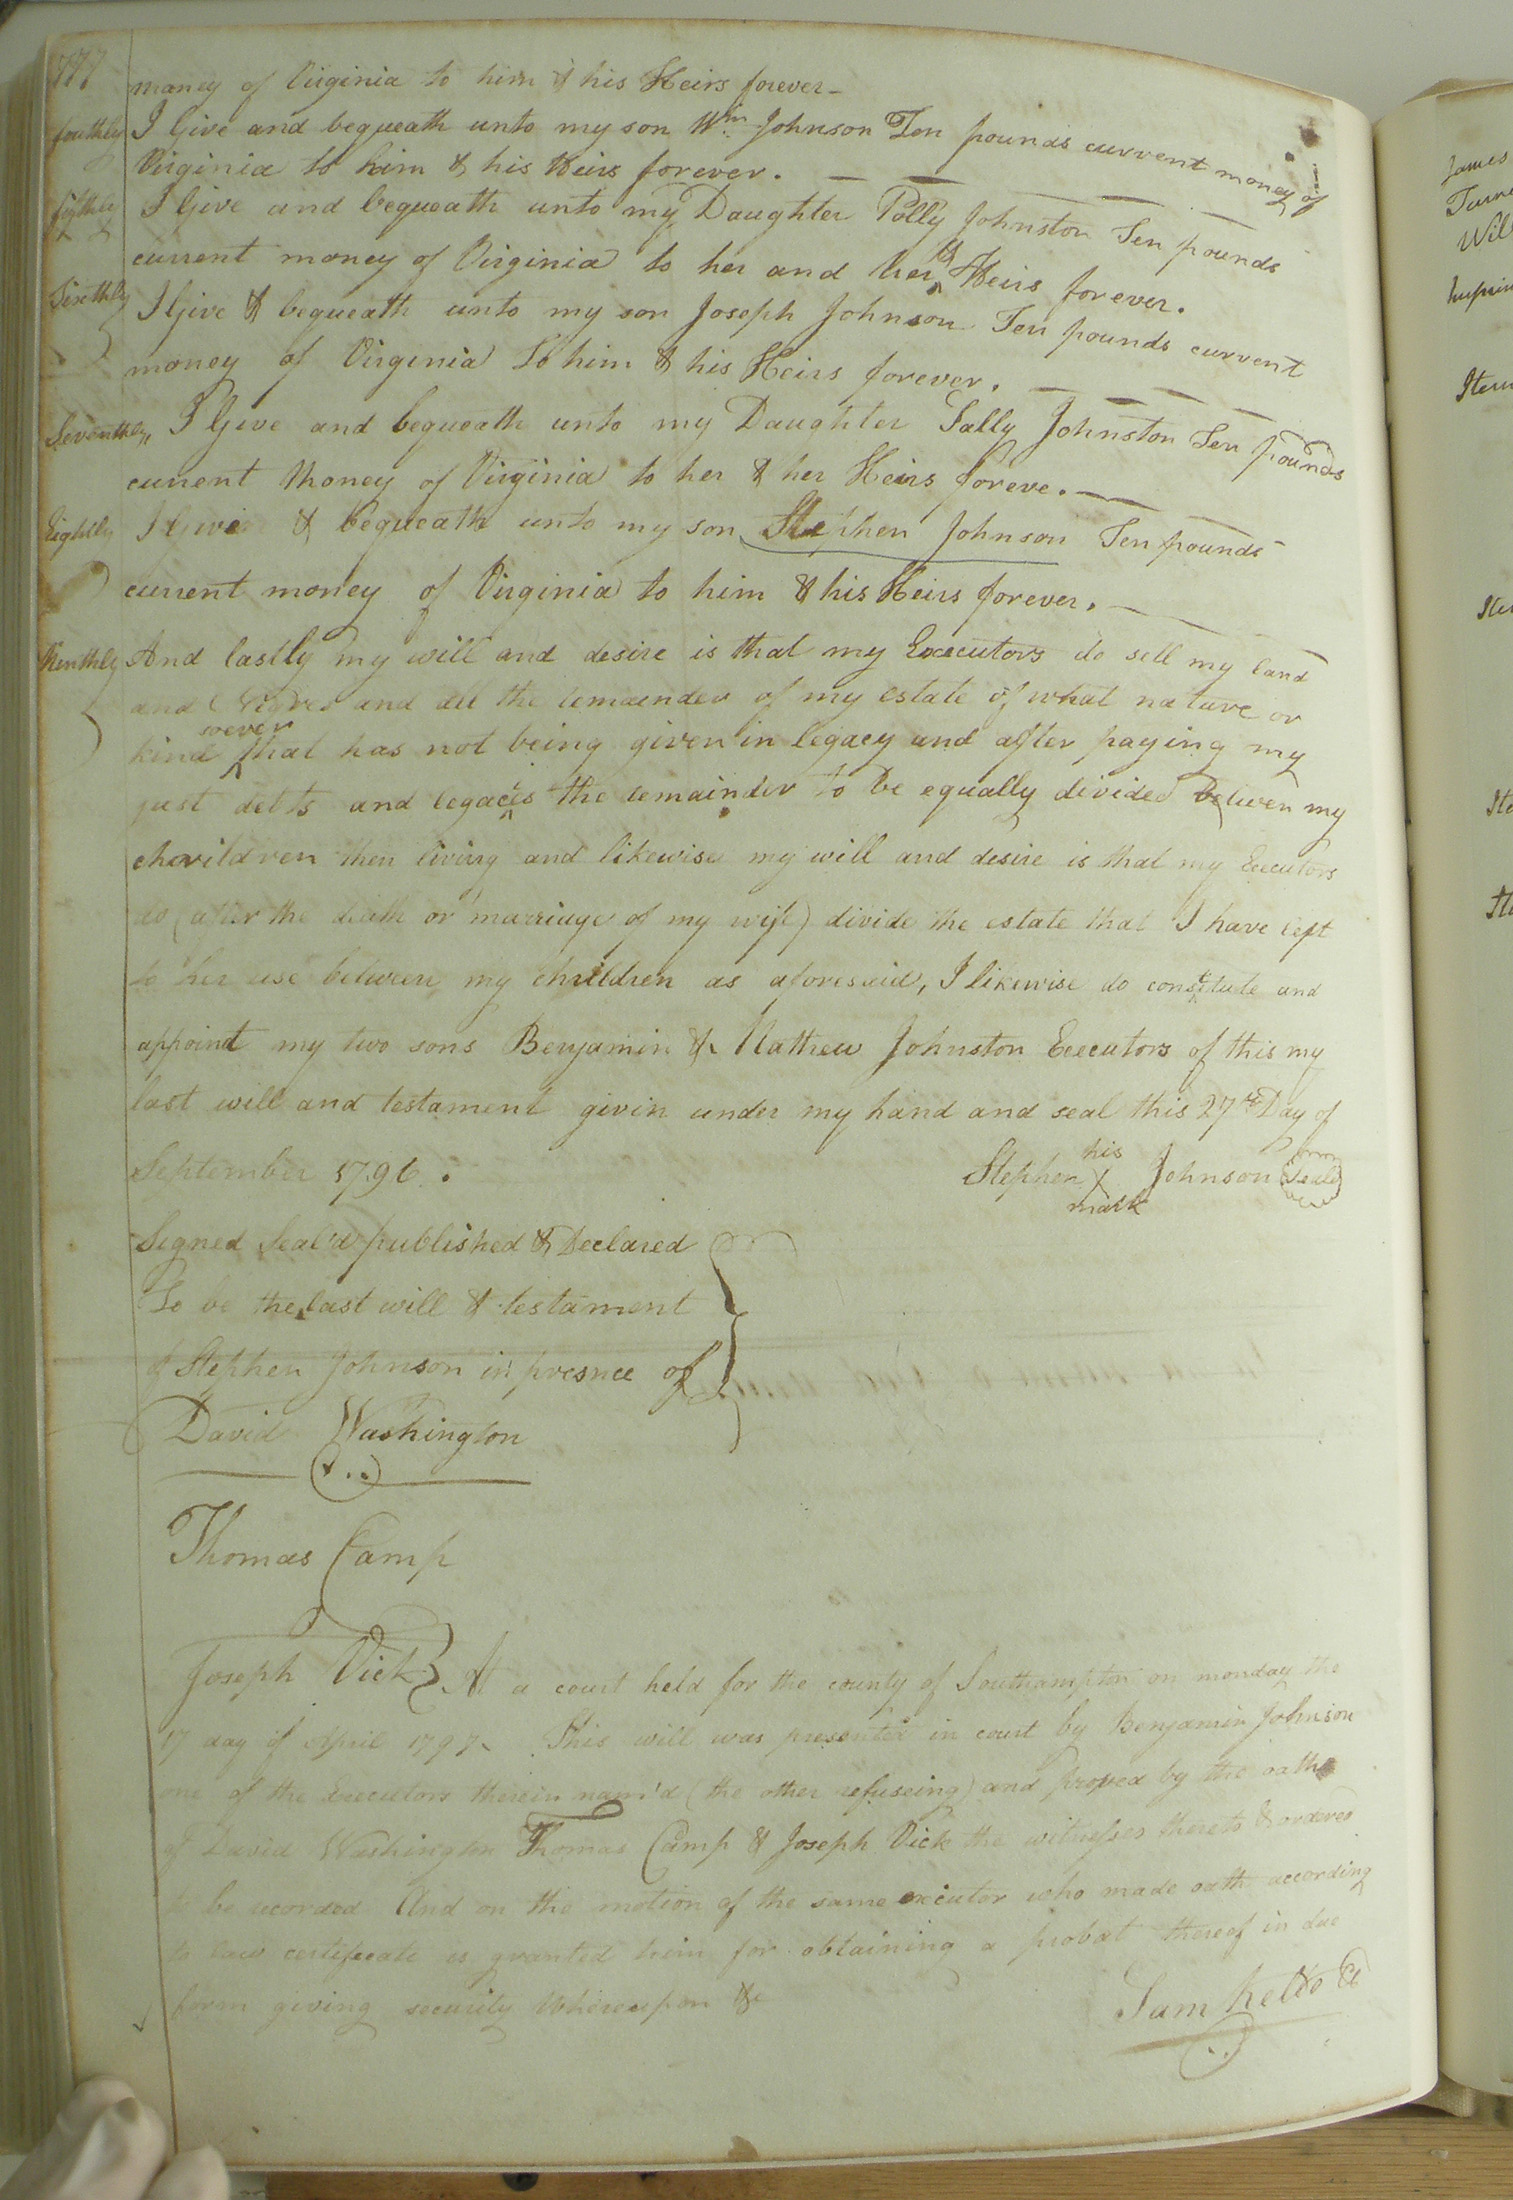 777
money of Virginia to him & his Heirs forever -
fouthly I Give and bequeath unto my son Wm Johnson Ten pounds current money of
Virginia to him & his Heirs forever. —
fifthly I Give and bequeath unto my Daughter Polly Johnston Ten pounds
current money of Virginia to her and her Heirs forever.
Sixthly I Give & bequeath unto my son Joseph Johnson Ten pounds current
money of Virginia to him & his Heirs forever. —
Seventhly I Give and bequeath unto my Daughter Sally Johnston Ten pounds
current money of Virginia to her & her Heirs foreve. —
Eightly I Give & bequeath unto my son Stephen Johnson Ten pounds
current money of Virginia to him & his Heirs forever. —
Nenthly And lastly my will and desire is that my Executors do sell my land
and and all the remainder of my estate of what nature or
kind soever that has not being given in legacy and after paying my
just debts and legacies the remainder to be equally divided between my
children then living and likewise my will and desire is that my Executors
do (after the death or marriage of my wife) divide the estate that I have left
to her use between my children as aforesaid, I likewise do constitute and
appoint my two sons Benjamin & Mathew Johnston Executors of this my
last will and testament givin under my hand and seal this 27th Day of
September 1796.
Stephen his X mark Johnson Seal
Signed Seal'd published & Declared
To be the last will & testament
of Stephen Johnson in presnce of
David Washington
Thomas Camp
Joseph Vick
At a court held for the county of Southampton on monday the
17 day of April 1797. This will was presented in court by Benjamin Johnson
one of the Executors therein nam'd (the other refuseing) and proved by the oaths
of David Washington Thomas Camp & Joseph Vick the witnesses thereto & ordered
to be recorded And on the motion of the same executor who made oath according
to law certificate is granted him for obtaining a probat thereof in due
form giving security Whereupon &c
Sam Kello Cl
James